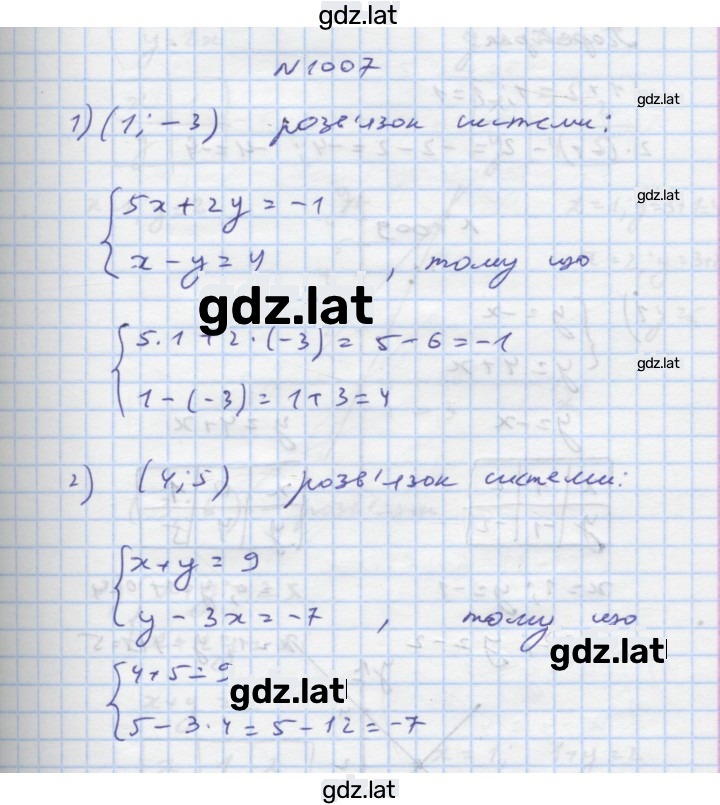 gdz.lat
N 1007
gdz.lat
1) (1; -3) розв'язок системи:
gdz.lat
{ 5x + 2y = -1
x - y = 4 , тому що
gdz.lat
{ 5·1 + 2·(-3) = 5 - 6 = -1
gdz.lat
1 - (-3) = 1 + 3 = 4
2) (4; 5) розв'язок системи:
{ x + y = 9
y - 3x = -7 , тому що
gdz.lat
{ 4 + 5 = 9
gdz.lat
5 - 3·4 = 5 - 12 = -7
gdz.lat